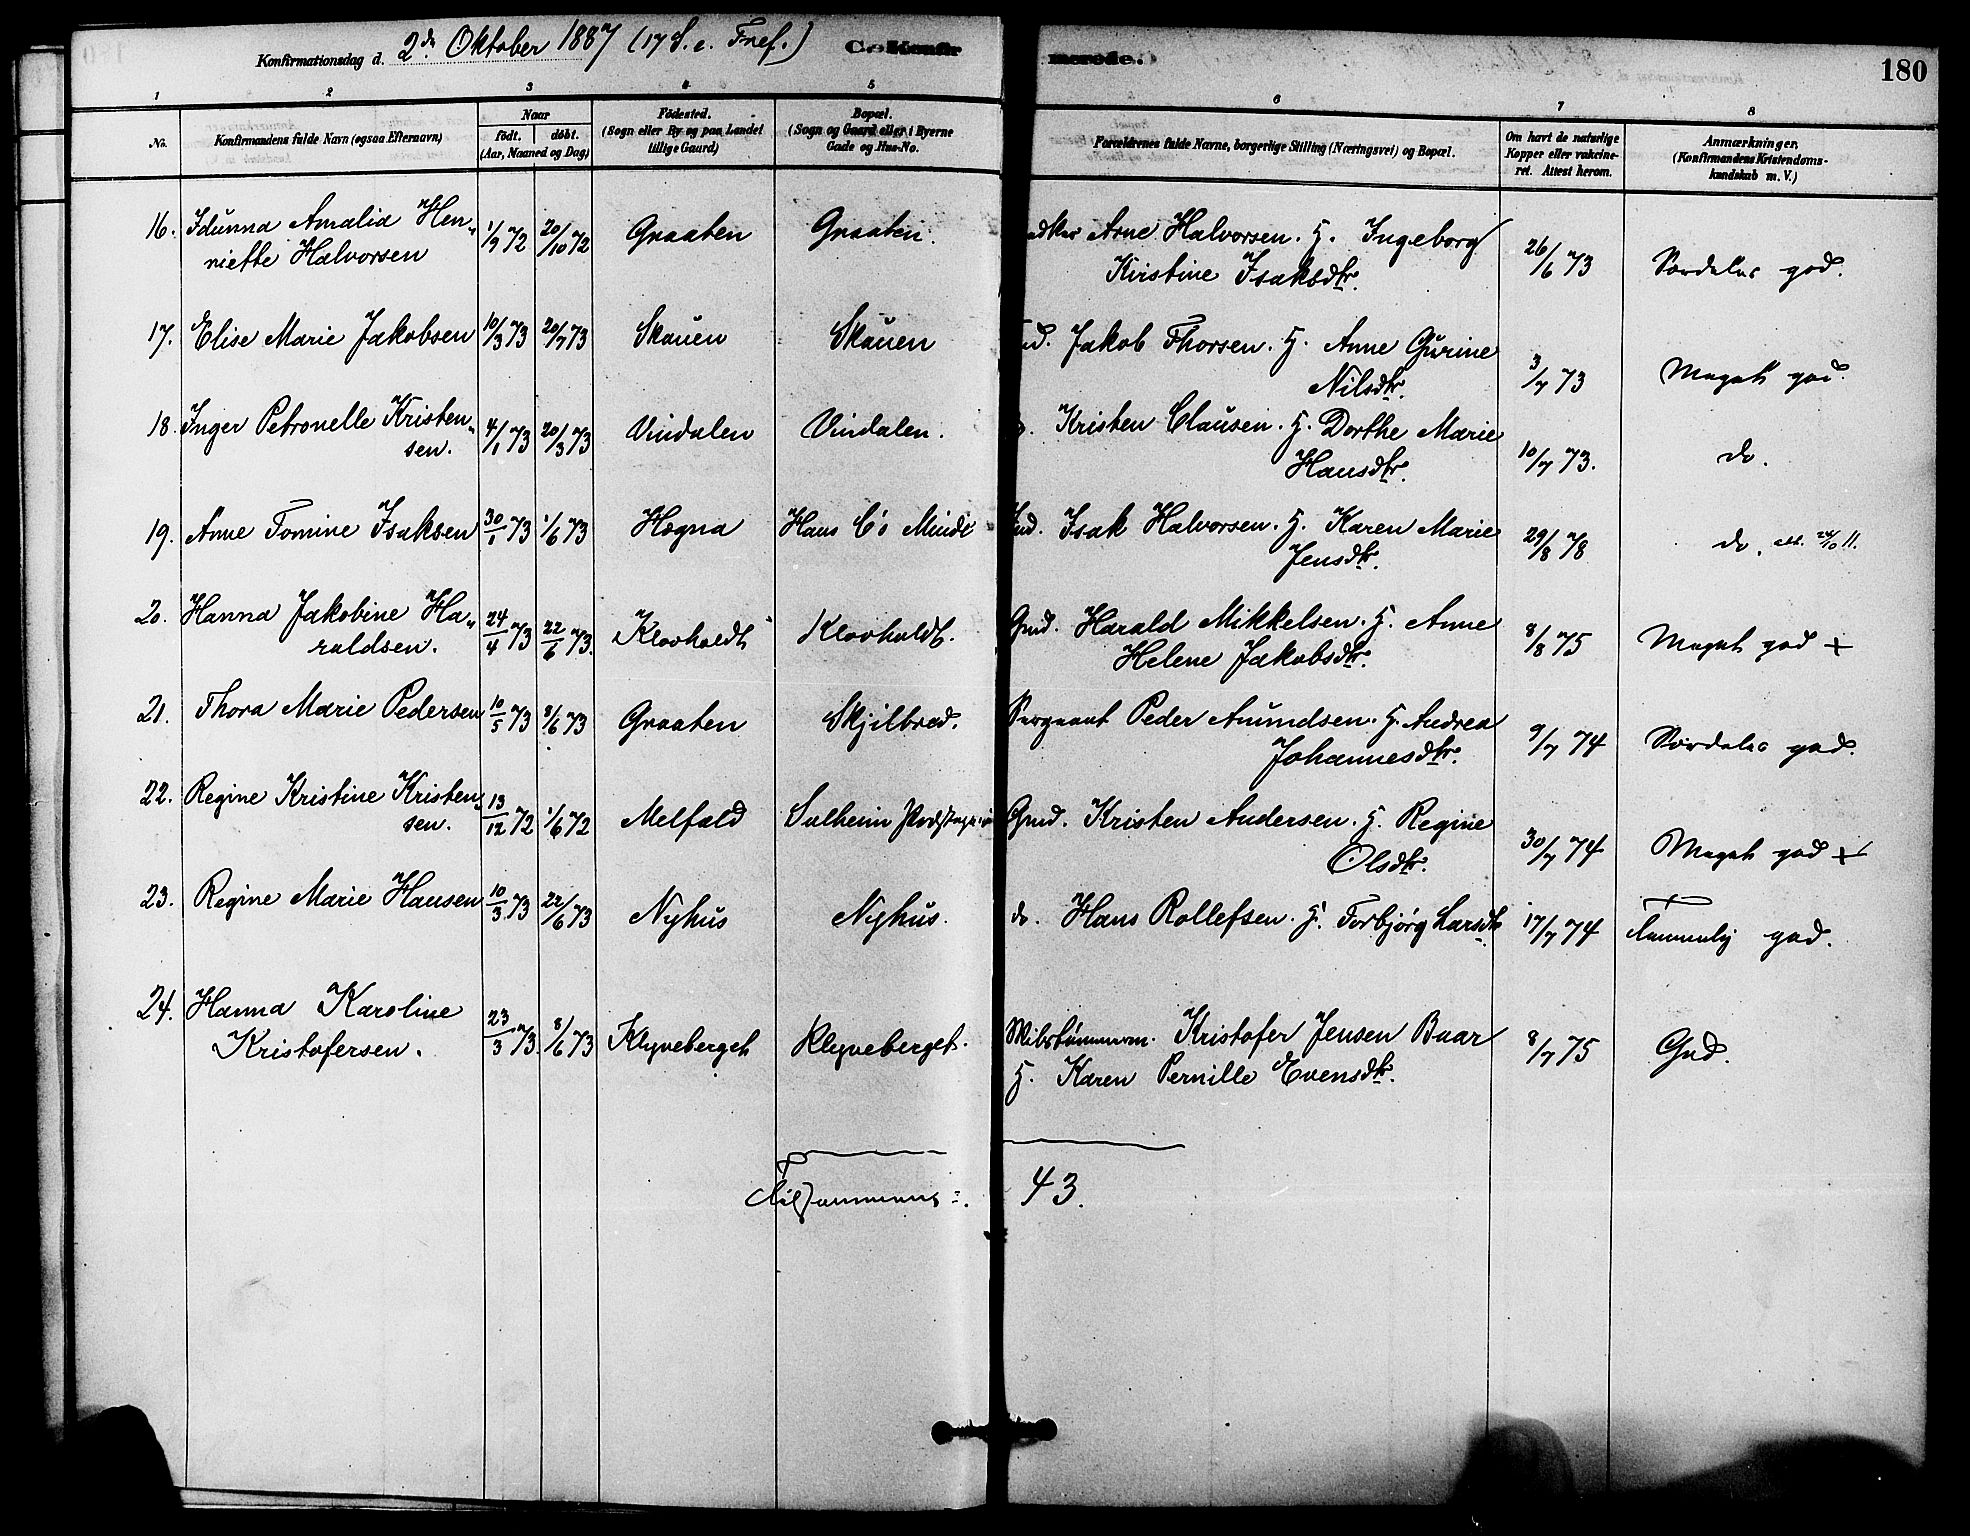 Konfirmationsdag d. 2den Oktober 1887 (17 S. e. Tref.) Konfir merede. 180
1 2 3 4 5 6 7 8
No. Konfirmandens fulde Navn (ogsaa Efternavn) Naar født. døbt. (Aar, Maaned og Dag) Fødested. (Sogn eller By og paa Landet tillige Gaard) Bopæl. (Sogn og Gaard eller i Byerne Gade og Hus-No. Forældrenes fulde Navne, borgerlige Stilling (Næringsvei) og Bopæl. Om havt de naturlige Kopper eller vakcineret. Attest herom. Anmærkninger, (Konfirmandens Kristendomskundskab m. V.)
16. Idunna Amalia Hen- 1/9 72 20/10 72 Graaten Graaten. Arne Halvorsen. H. Ingeborg 26/6 73 Særdeles god.
niette Halvorsen Kirstine Isaksdtr.
17. Elise Marie Jakobsen 10/3 73 20/7 73 Skauen Skauen Jakob Thorsen. H. Anne Gurine 3/7 73 Meget god.
Nilsdtr.
18. Inger Petronelle Kristen- 4/1 73 20/3 73 Vindalen Vindalen. Kristen Clausen. H. Dorthe Marie 10/7 73. do.
sen. Hansdtr.
19. Anne Tomine Isaksen 30/1 73 1/6 73 Hogna Hans C's Minde Gmd. Isak Halvorsen. H. Karen Marie 29/8 78 do. att. 24/10 11.
Jensdtr.
20. Hanna Jakobine Ha- 24/4 73 22/6 73. Klovholdt Klovholdt. Gmd. Harald Mikkelsen. H. Anne 8/8 75 Meget god +
raldsen. Helene Jakobsdtr.
21. Thora Marie Pedersen 10/5 73 8/6 73 Graaten Skjilbred. Sergeant Peder Amundsen. H. Andrea 9/7 74 Særdeles god.
Johannesdtr.
22. Regine Kristine Kristen- 13/12 72 1/6 72 Melfald Solheim Gmd. Kristen Andersen. H. Regine 30/7 74 Meget god +
sen. Olsdtr.
23. Regine Marie Hansen 10/3 73 22/6 73 Nyhus Nyhus. do. Hans Rollefsen. H. Torbjørg Larsdtr 17/7 74 Temmelig god.
24. Hanna Karoline 23/3 73. 8/6 73 Klyveberget Klyveberget. Kristofer Jensen Baar 8/7 75 God.
Kristofersen. H. Karen Pernille Evensdtr.
Tilsammens: 43.